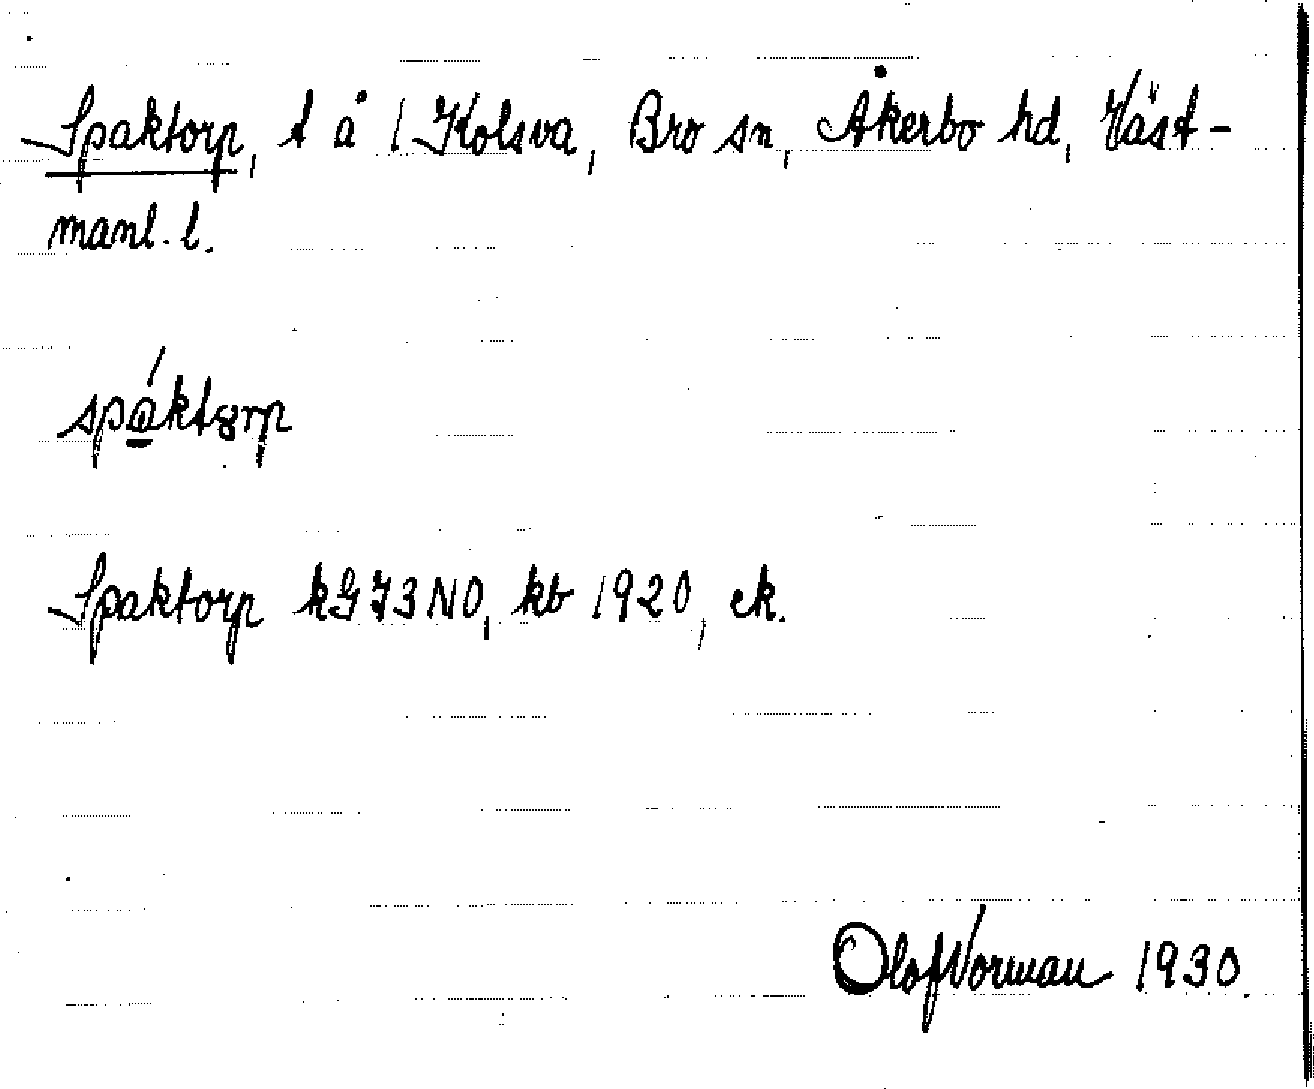 Spaktorp, t å 1 Kolsva, Bro sn, Åkerbo hd, Väst-
manl. l.
Spaktorp kGJ3NO, kb 1920, ek.
Olof Norman 1930.